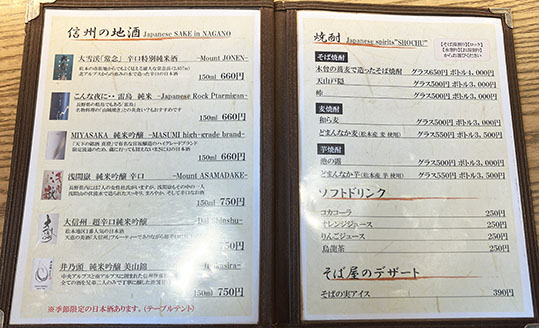 信州の地酒 Japanese SAKE in NAGANO
大雪渓「常念」 辛口特別純米酒 -Mount JONEN-
150ml 660円
こんな夜に・・ 雷鳥 純米 -Japanese Rock Ptarmigan-
長野県の県鳥でもある「雷鳥」
150ml 660円
MIYASAKA 純米吟醸 -MASUMI high-grade brand-
150ml 660円
浅間嶽 純米吟醸 辛口 -Mount ASAMADAKE-
150ml 750円
大信州 超辛口純米吟醸
松本地区1番人気の日本酒
750円
井乃頭 純米吟醸 美山錦
150ml 750円
※季節限定の日本酒あります。(テーブルテント)
焼酎 Japanese spirits"SHOCHU"
【そば湯割り】【ロック】
【水割り】【お湯割り】
からお選び下さい
そば焼酎
木曽の蕎麦で造ったそば焼酎 グラス650円 ボトル4,000円
天山戸隠 グラス550円 ボトル3,500円
峠 グラス550円 ボトル3,500円
麦焼酎
和ら麦 グラス550円 ボトル3,500円
どまんなか麦(松本産 麦 使用) グラス550円 ボトル3,500円
芋焼酎
池の露 グラス550円 ボトル3,500円
どまんなか芋(松本産 芋 使用) グラス550円 ボトル3,500円
ソフトドリンク
コカコーラ 250円
オレンジジュース 250円
りんごジュース 250円
烏龍茶 250円
そば屋のデザート
そばの実アイス 390円